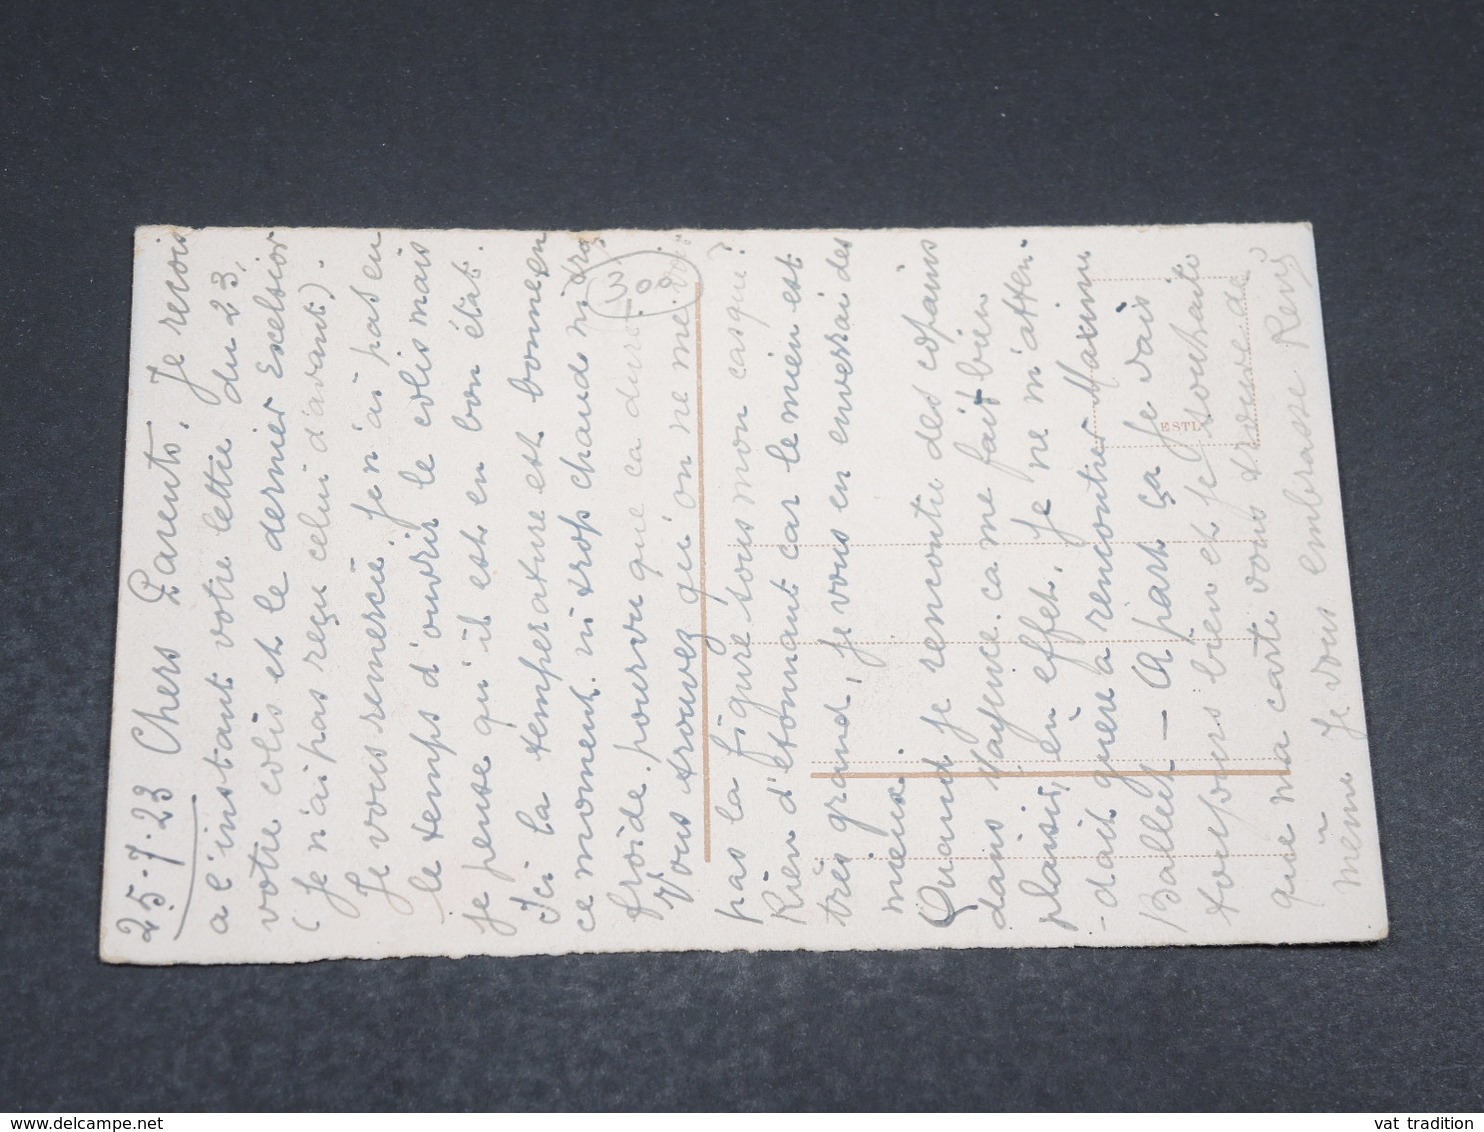 25-7-23 Chers Parents, Je reçois
a l'instant votre lettre du 23,
votre colis et le dernier Excelsior
(Je n'ai pas reçu celui d'avant).
Je vous remercie, Je n'ai pas eu
le temps d'ouvrir le colis mais
je pense qu'il est en bon état.
Ici la temperature est bonne en
ce moment. ni trop chaud ni trop
froide, pourvu que ca dure!
Vous trouvez qu'on ne me voit
pas la figure sous mon casque?
Rien d'étonnant car le mien est
très grand, je vous en enverrai des
mieux.
Quand je rencontre des copains
dans Mayence. ca me fait bien
plaisir, en effet, Je ne m'atten
-dait guère a rencontrer Maxime
Balleét - A part ça je vais
toujours bien et je souhaite
que ma carte vous trouve de
même Je vous embrasse
300
ESTL
vat tradition
www.delcampe.net